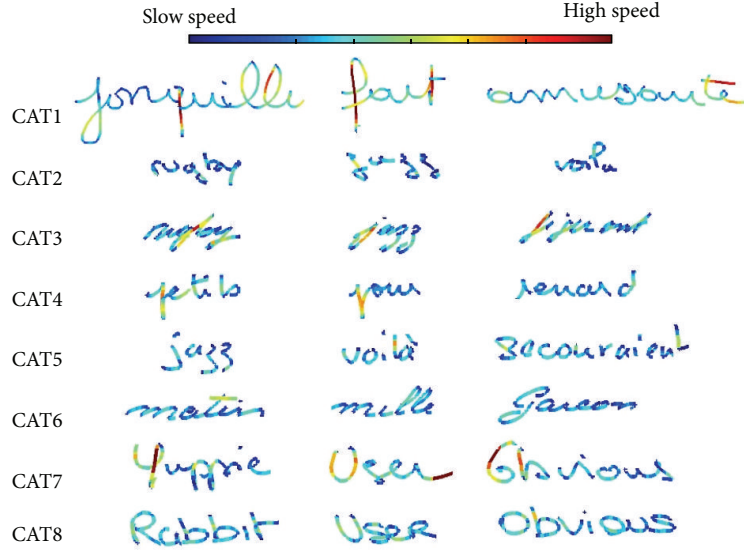 Slow speed High speed
CAT1 jonquille faut amusante
CAT2 rugby jazz voilà
CAT3 rugby jazz
CAT4 petits pour renard
CAT5 jazz voilà secouraient
CAT6 matin mille Garcon
CAT7 Yuppie User Obvious
CAT8 Rabbit User Obvious